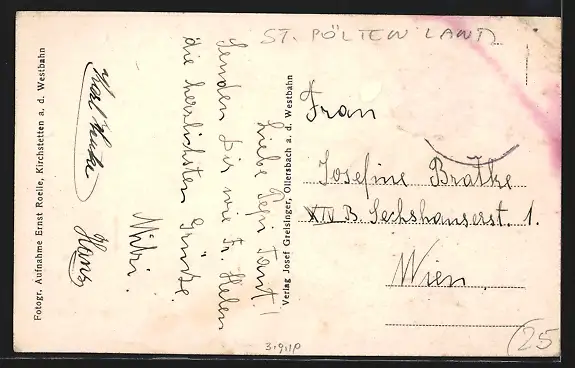 ST. PÖLTEN LAND
Liebe Pepi Tant!
Senden Dir wie Fr. Helen
die herzlichsten Grüße.
Mitzi.
Karl
Hans
Fotogr. Aufnahme Ernst Roelle, Kirchstetten a. d. Westbahn
Verlag Josef Greisinger, Ollersbach a. d. Westbahn
Frau
Josefine Bratke
XIV B. Sechshauserst. 1.
Wien
25